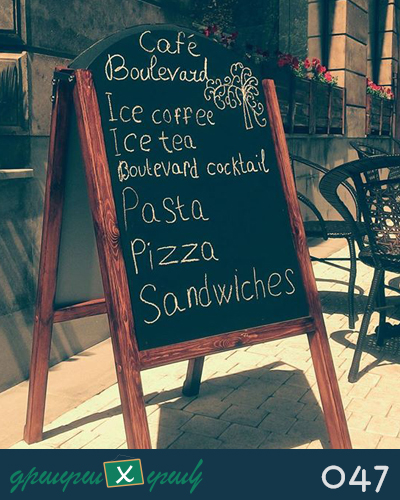 Café
Boulevard
Ice coffee
Ice tea
Boulevard cocktail
Pasta
Pizza
Sandwiches
գրատա X տակ 047